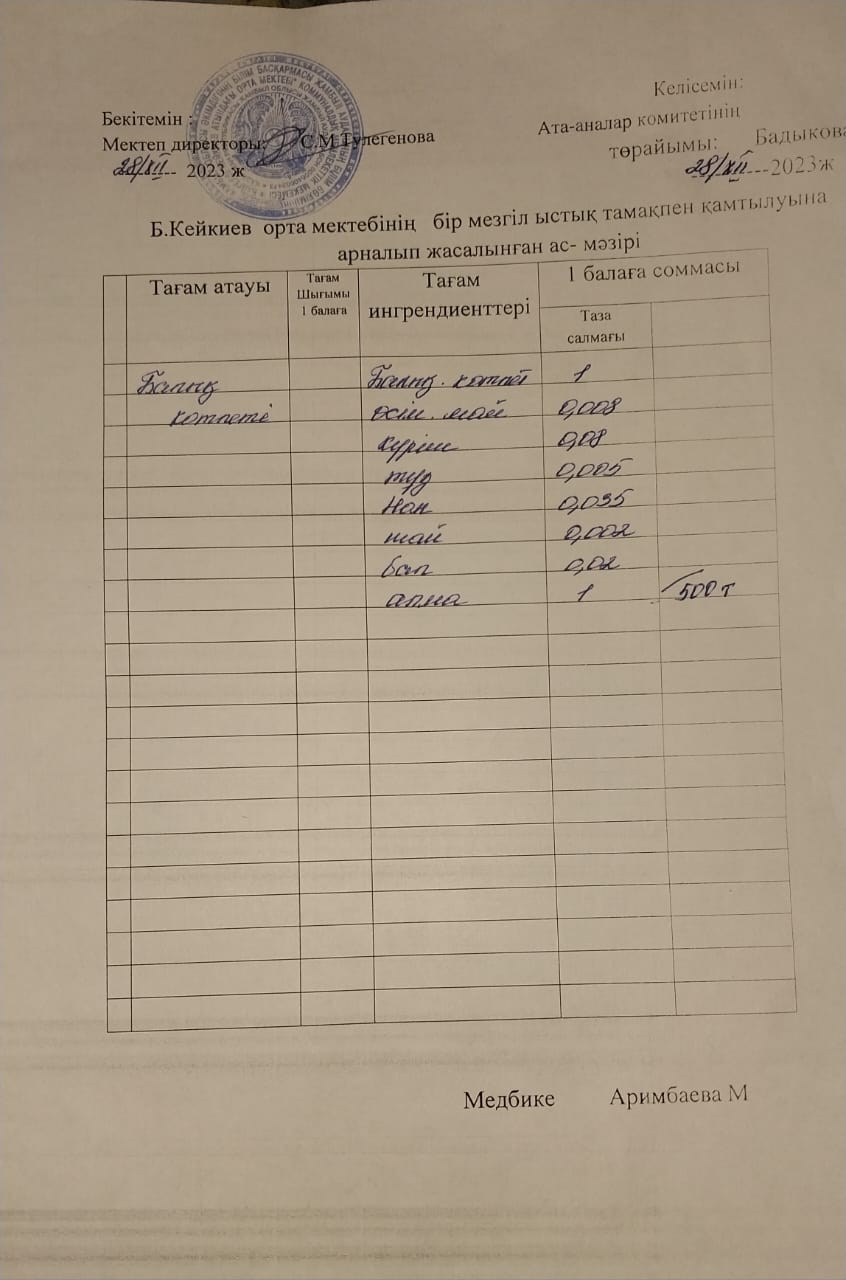 Бекітемін :
Мектеп директоры: С.М Тулегенова
28/XII-- 2023 ж
Келісемін:
Ата-аналар комитетінің
төрайымы: Бадыкова
28/XII---2023ж
Б.Кейкиев орта мектебінің бір мезгіл ыстық тамақпен қамтылуына
арналып жасалынған ас- мәзірі
Тағам атауы
Тағам
Шығымы
1 балаға
Тағам
ингрендиенттері
1 балаға соммасы
Таза
салмағы
Балық Балық. котлет 1
котлеті өсім. май 0,008
күріш 0,08
тұз 0,005
Нан 0,035
шай 0,002
бал 0,02
алма 1 /500 т
Медбике Аримбаева М